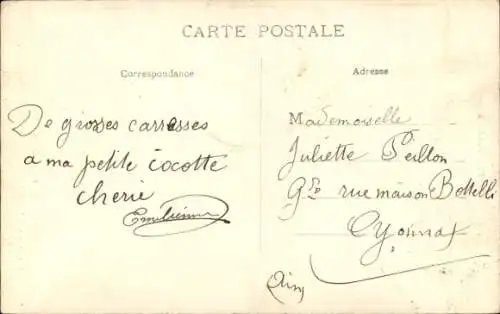 CARTE POSTALE
Correspondance
De grosses carresses
a ma petite cocotte
cherie
Emilienne
Adresse
Mademoiselle
Juliette Peillon
Gde rue maison Bottelli
Oyonnax
Ain